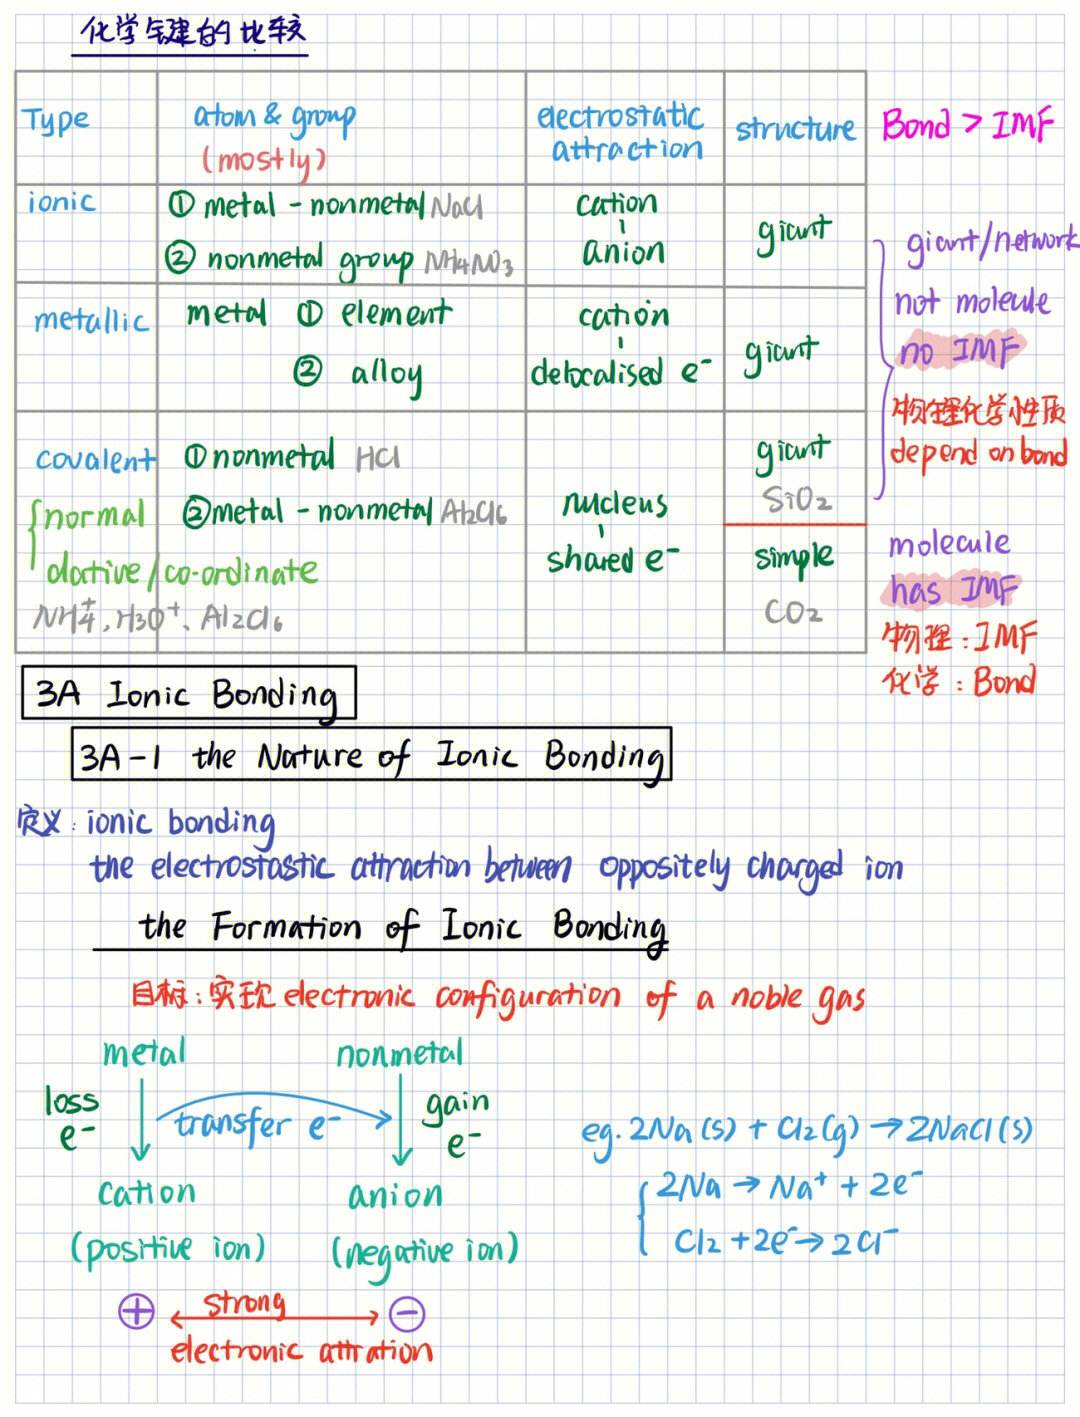 化学键的比较
Type
atom & group
(mostly)
electrostatic
attraction
structure
Bond > IMF
ionic
① metal - nonmetal NaCl
② nonmetal group NH4NO3
cation
anion
giant
metallic
metal ① element
② alloy
cation
delocalised e⁻
giant
giant/network
not molecule
no IMF
物理化学性质
depend on bond
covalent
normal
dative/co-ordinate
NH4⁺, H3O⁺、Al2Cl6
① nonmetal HCl
② metal - nonmetal Al2Cl6
nucleus
shared e⁻
giant
SiO2
simple
CO2
molecule
has IMF
物理:IMF
化学:Bond
3A Ionic Bonding
3A-1 the Nature of Ionic Bonding
定义:ionic bonding
the electrostastic attraction between oppositely charged ion
the Formation of Ionic Bonding
目标:实现 electronic configuration of a noble gas
metal
nonmetal
loss
e⁻
transfer e⁻
gain
e⁻
cation
anion
(positive ion)
(negative ion)
+
strong
−
electronic attration
eg. 2Na(s) + Cl2(g) → 2NaCl(s)
2Na → Na⁺ + 2e⁻
Cl2 + 2e⁻ → 2Cl⁻